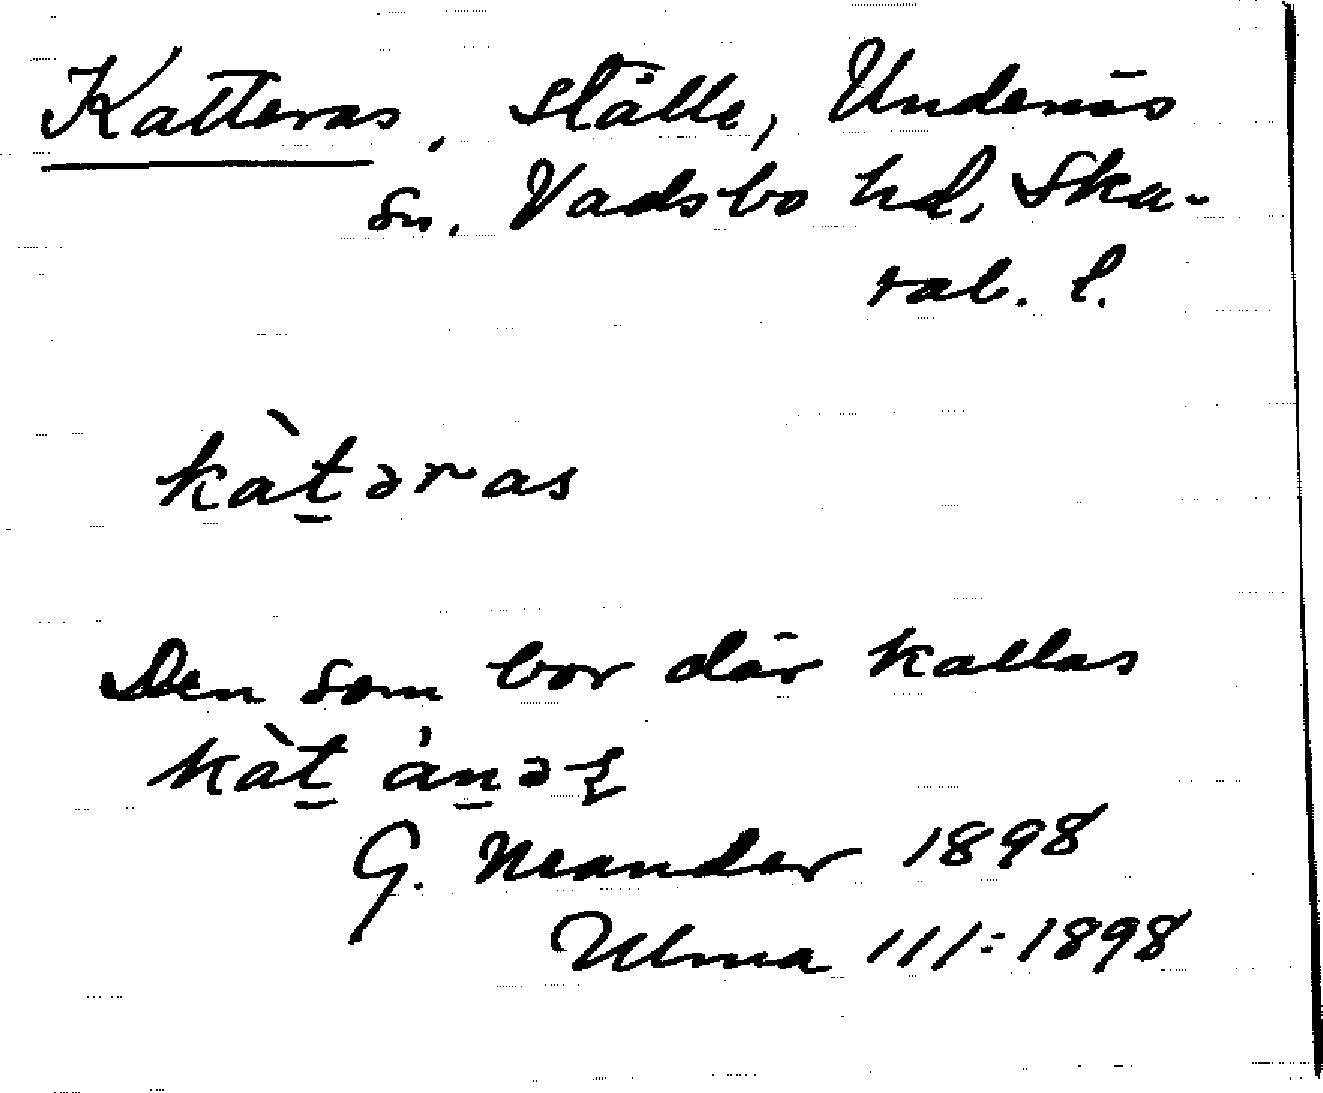 Katteras, ställe, Undenäs
sn. Vadsbo hd, Ska-
rab. l.
kàt̲əras
Den som bor där kallas
kàt̲ án̲əʂ
G. Neander 1898
Ulma 111:1898